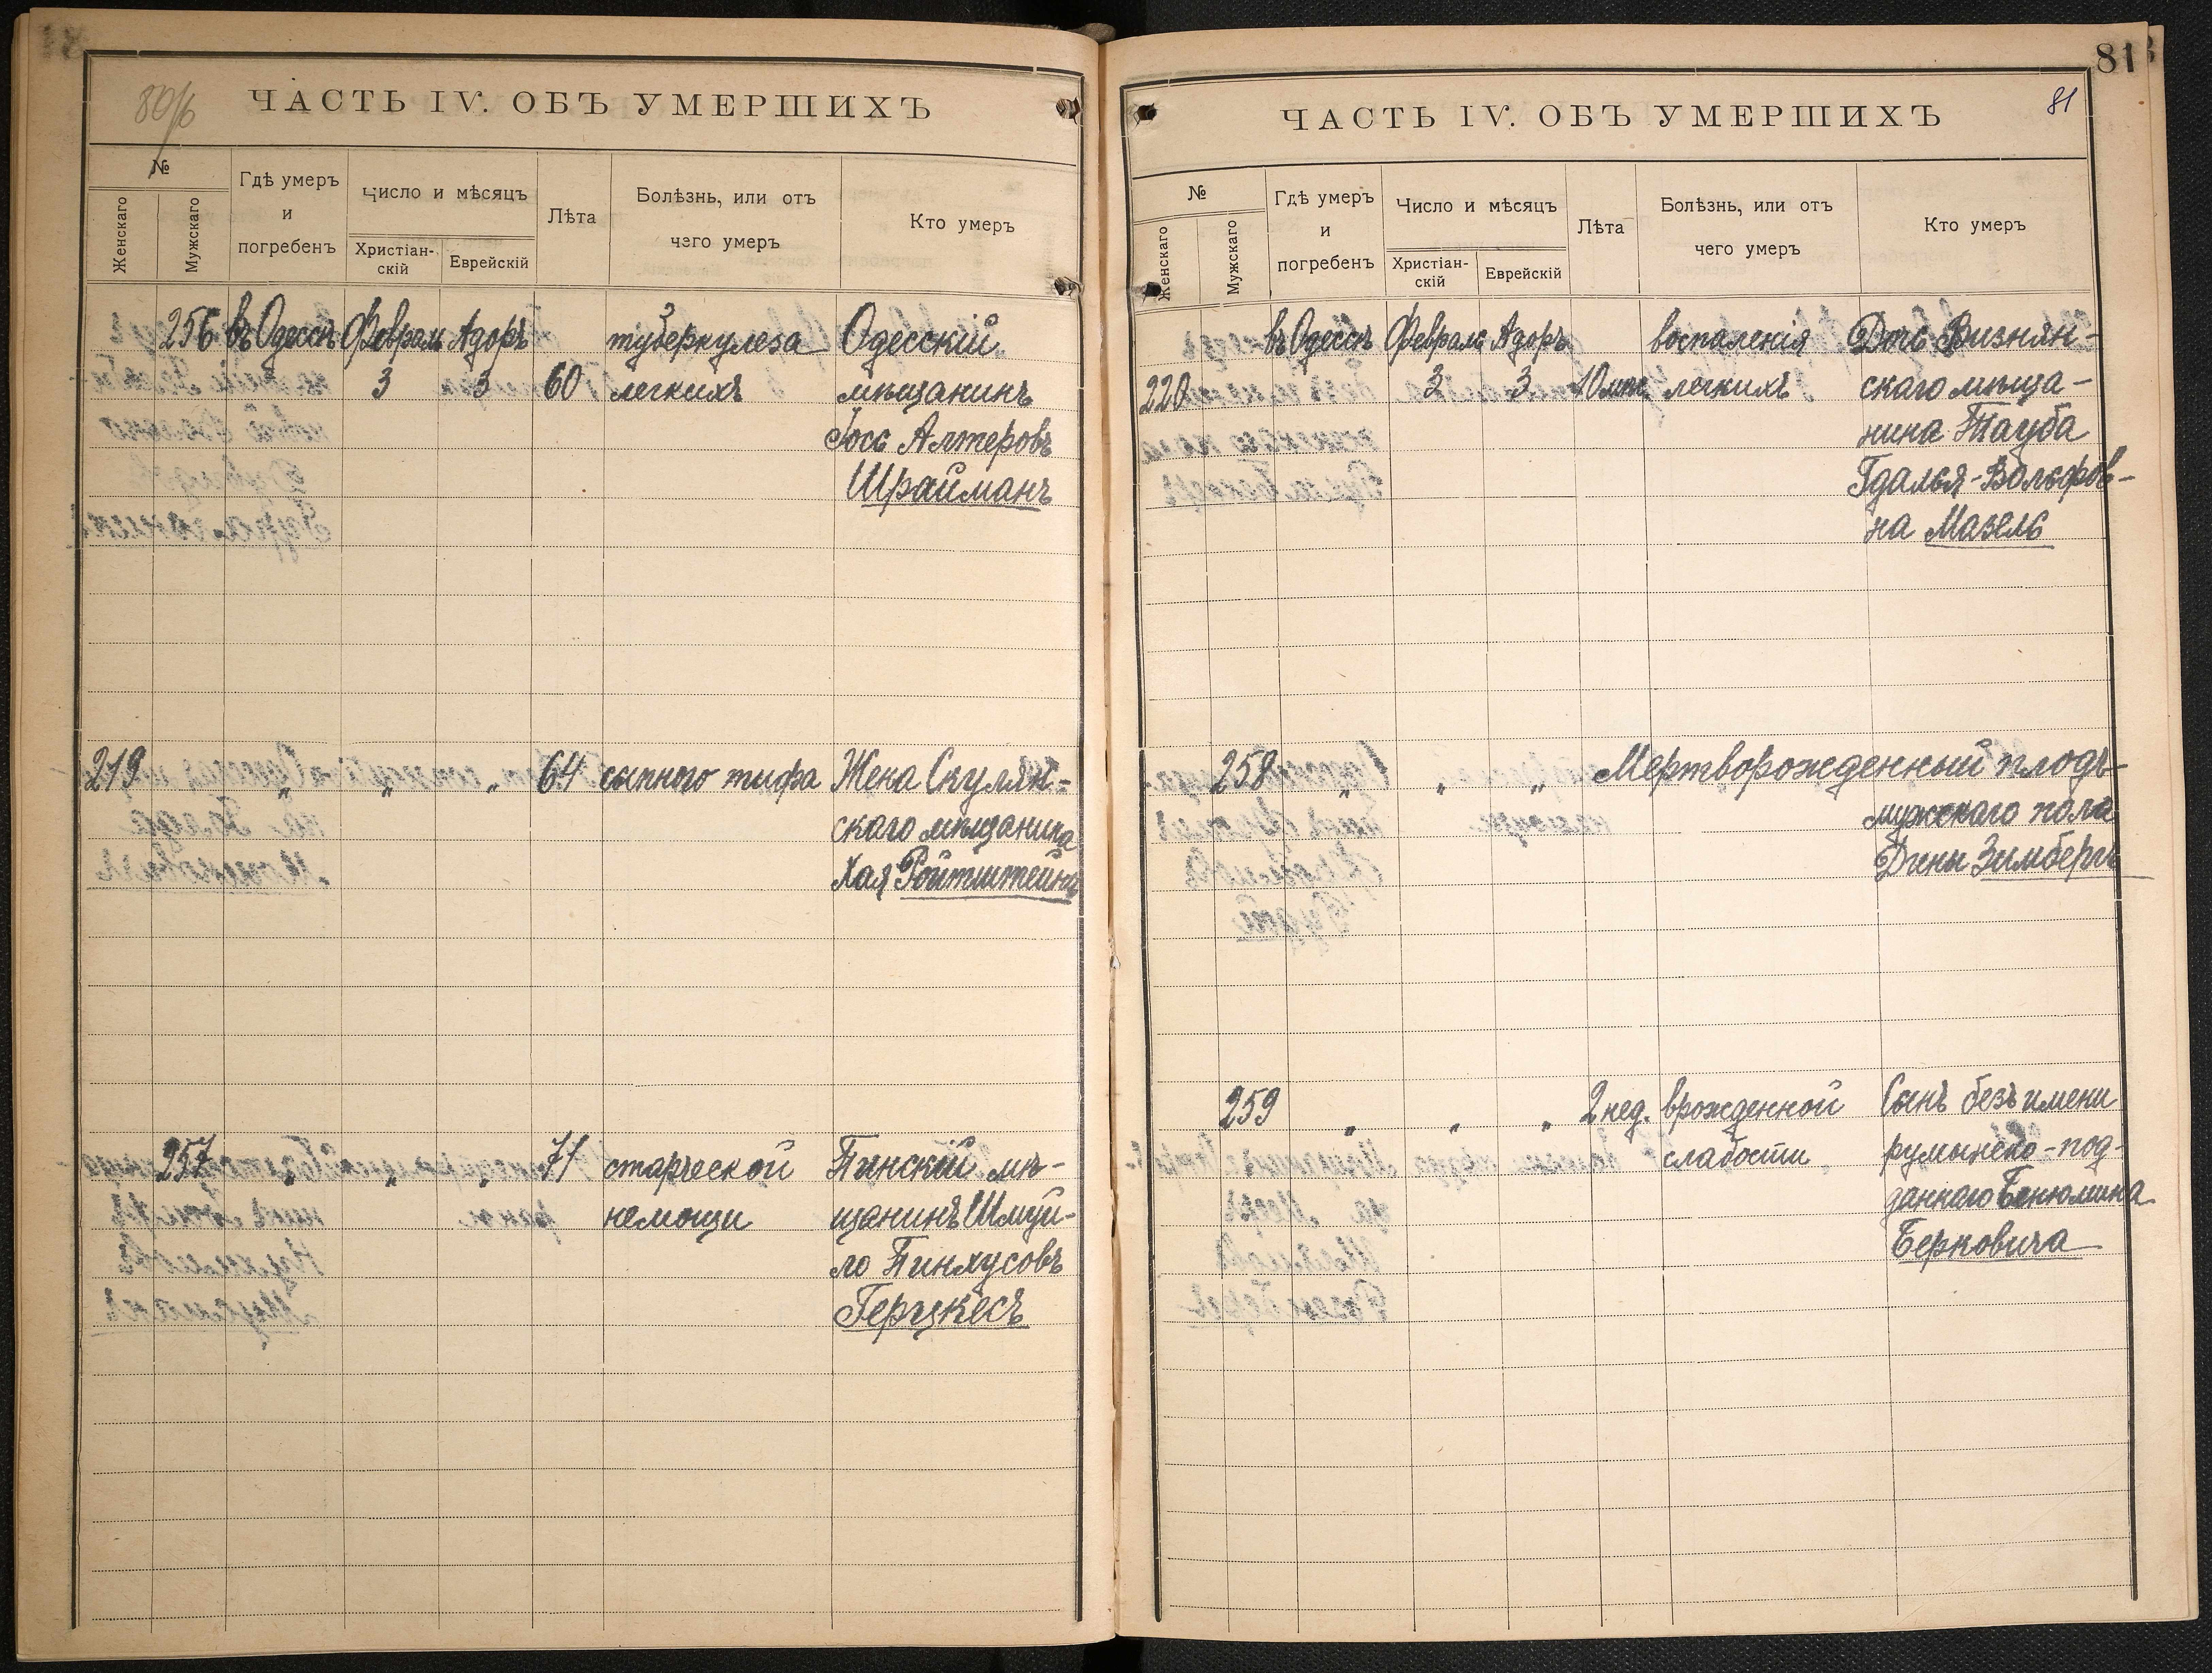 80/б
ЧАСТЬ IV. ОБЪ УМЕРШИХЪ
№
Женскаго
Мужскаго
Гдѣ умеръ
и
погребенъ
Число и мѣсяцъ
Христіан-
скій
Еврейскій
Лѣта
Болѣзнь, или отъ
чего умеръ
Кто умеръ
256 въ Одессѣ Февраль Адоръ туберкулеза Одесскій
3 3 60 легкихъ мѣщанинъ
Іось Алтеровъ
Шрайманъ
219 " " " 64 сыпного тифа Жена Скулян-
скаго мѣщанина
Хая Ройтштейнъ
257 " " " 71 старческой Пинскій мѣ-
немощи щанинъ Шмуй-
ло Пинхусовъ
Герцкесъ
81
81
ЧАСТЬ IV. ОБЪ УМЕРШИХЪ
№
Женскаго
Мужскаго
Гдѣ умеръ
и
погребенъ
Число и мѣсяцъ
Христіан-
скій
Еврейскій
Лѣта
Болѣзнь, или отъ
чего умеръ
Кто умеръ
въ Одессѣ Февраль Адоръ воспаленія Дочь Визнян-
220 3 3 10 мѣс. легкихъ скаго мѣща-
нина Тауба
Гдалья-Вольфов-
на Мазель
258 " " " Мертворожденный плодъ
мужскаго пола
Дины Зимбергъ
259 " " " 2 нед. врожденной Сынъ безъ имени
слабости румынско-под-
даннаго Бенюмина
Берковича